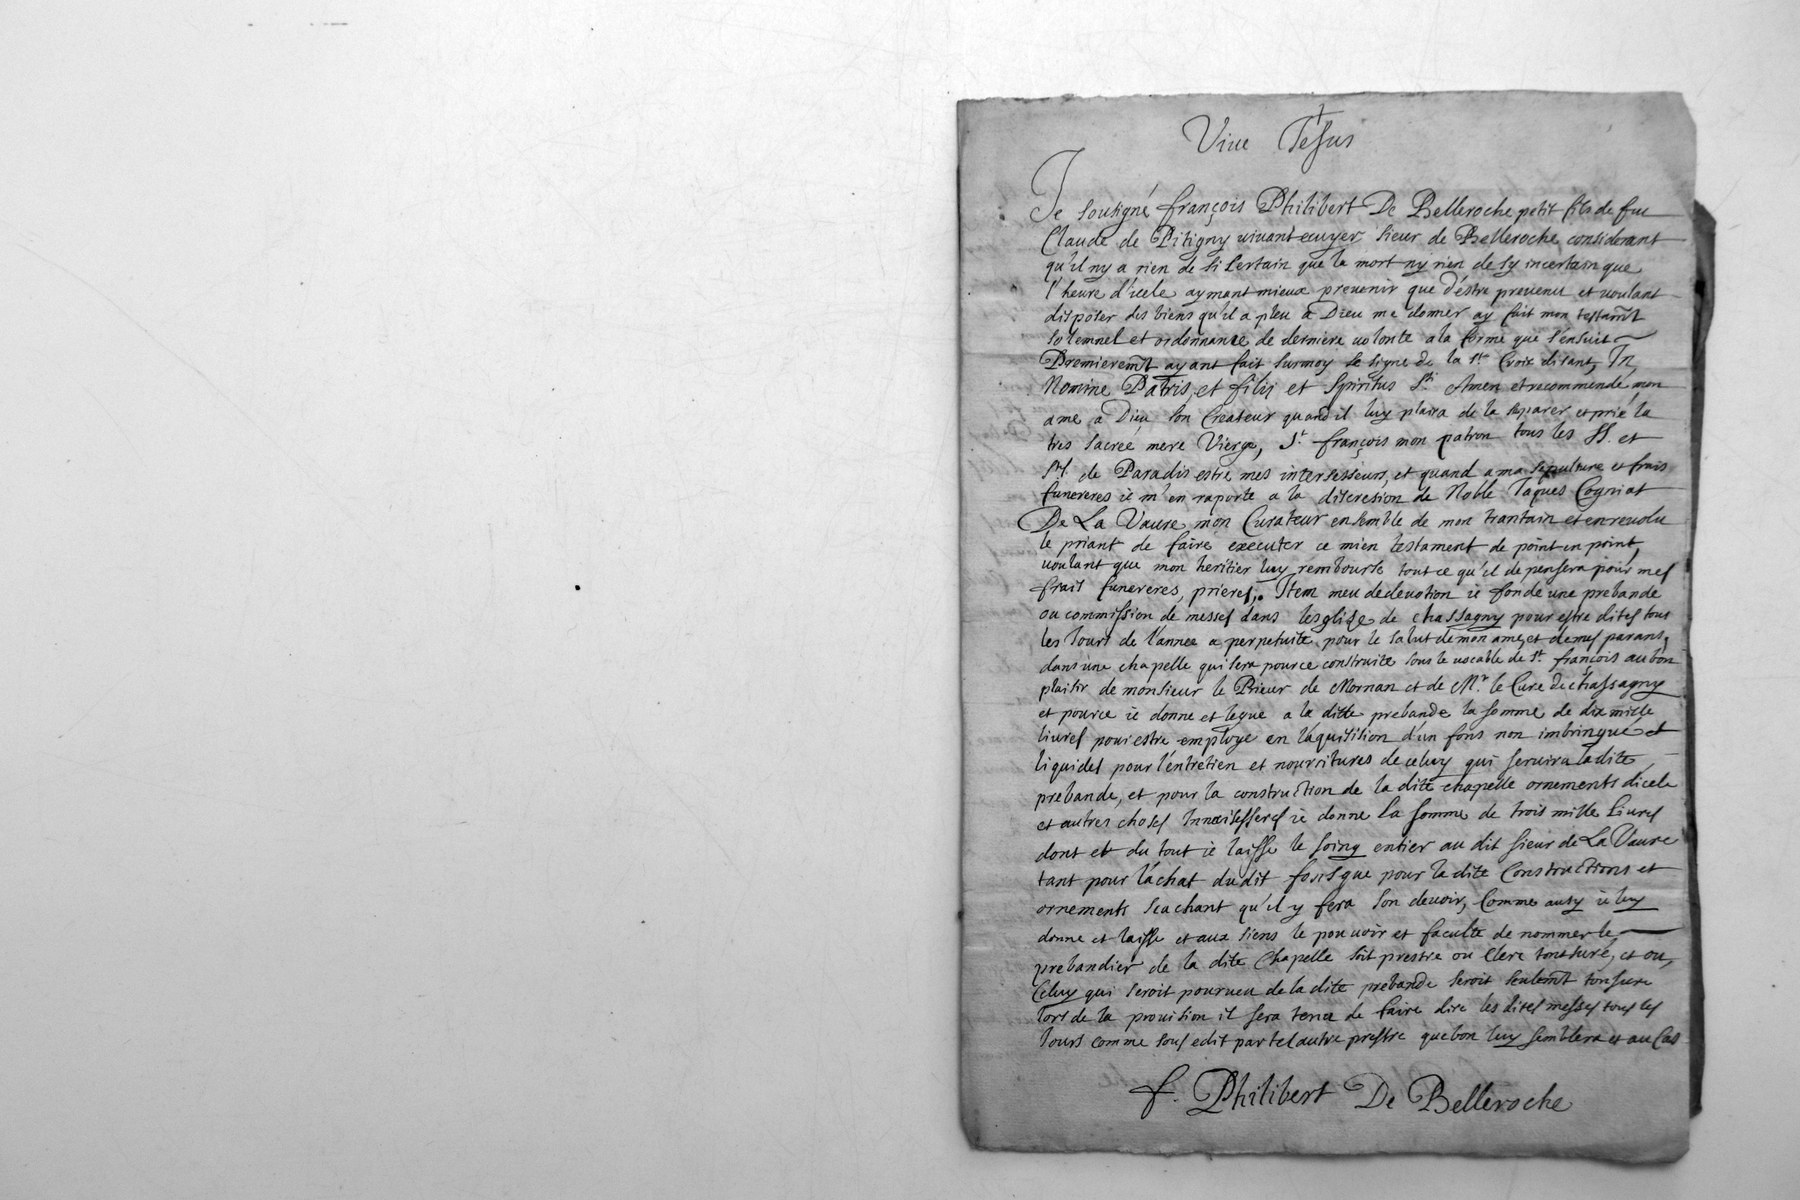 Vive Jesus
Je sousigné françois Philibert De Belleroche petit fils de feu
Claude de Pitigny vivant ecuyer sieur de Belleroche considerant
qu'il ny a rien de si certain que la mort ny rien de sy incertain que
l'heure d'icele aymant mieux prevenir que d'éstre prevenu et voulant
disposer des biens qu'il a pleu a Dieu me donner ay fait mon testamt
solemnel et ordonnance de derniere volonte a la forme que s'ensuit
Premieremt ayant fait surmoy le signe de la Ste Croix disant, In
Nomine Patris, et filij et Spiritus Sti Amen et recommendé mon
ame a Dieu son Createur quand il luy plaira de la separer et prié la
tres sacree mere Vierge, St françois mon patron tous les SS. et
Stes. de Paradis estre mes intersesseurs, et quand a ma sepulture et frais
funereres ie m'en raporte a la discresion de Noble Jaques Cogniat
De La Vaure mon Curateur ensemble de mon trantain et en revolu
le priant de faire executer ce mien testament de point en point,
voulant que mon heritier luy rembourse tout ce qu'il depensera pour mes
frais funereres, prieres,. Item meu de devotion ie fonde une prebande
ou commission de messes dans lesglize de chassagny pour estre dites tous
les Jours de l'annee a perpetuite pour le salut de mon ame, et de mes parans,
dans une chapelle qui sera pource construite sous le vocable de St. françois au bon
plaisir de monsieur le Prieur de Mornan et de Mr. le Cure de chassagny
et pource ie donne et legue a la ditte prebande la somme de dix mille
livres pour estre employe en láquisition d'un fons non imbringué et
liquides pour l'entretien et nourritures de celuy qui servira la dite
prebande, et pour la construction de la dite chapelle ornements dicele
et autres choses ie donne la somme de trois mille Livres
dont et du tout ie laisse le soing entier au dit sieur de La Vaure
tant pour láchat dudit fons que pour la dite Constructions et
ornements scachant qu'il y fera son devoir, Comme ausy ie luy
donne et laisse et aux siens le pouvoir et faculte de nommer le
prebandier de la dite Chapelle soit prestre ou Clerc tonsure, et ou,
Celuy qui seroit pourveu de la dite prebande seroit seulemt tonsure
lors de la provision il sera tenu de faire dire les dites messes tous les
Jours comme sous edit par tel autre prestre que bon luy semblera et au Cas
f. Philibert De Belleroche